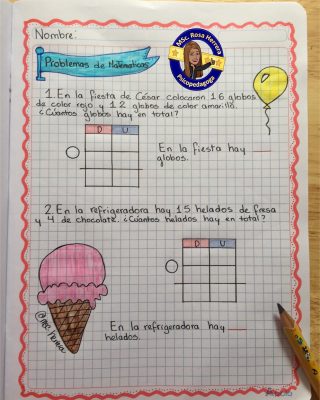 Nombre:
MSc. Rosa Herrera
Psicopedagoga
Problemas de Matemáticas
1. En la fiesta de César colocaron 16 globos
de color rojo y 12 globos de color amarillo.
¿Cuántos globos hay en total?
D U
En la fiesta hay
globos.
2. En la refrigeradora hay 15 helados de fresa
y 4 de chocolate. ¿Cuántos helados hay en total?
D U
En la refrigeradora hay
helados.